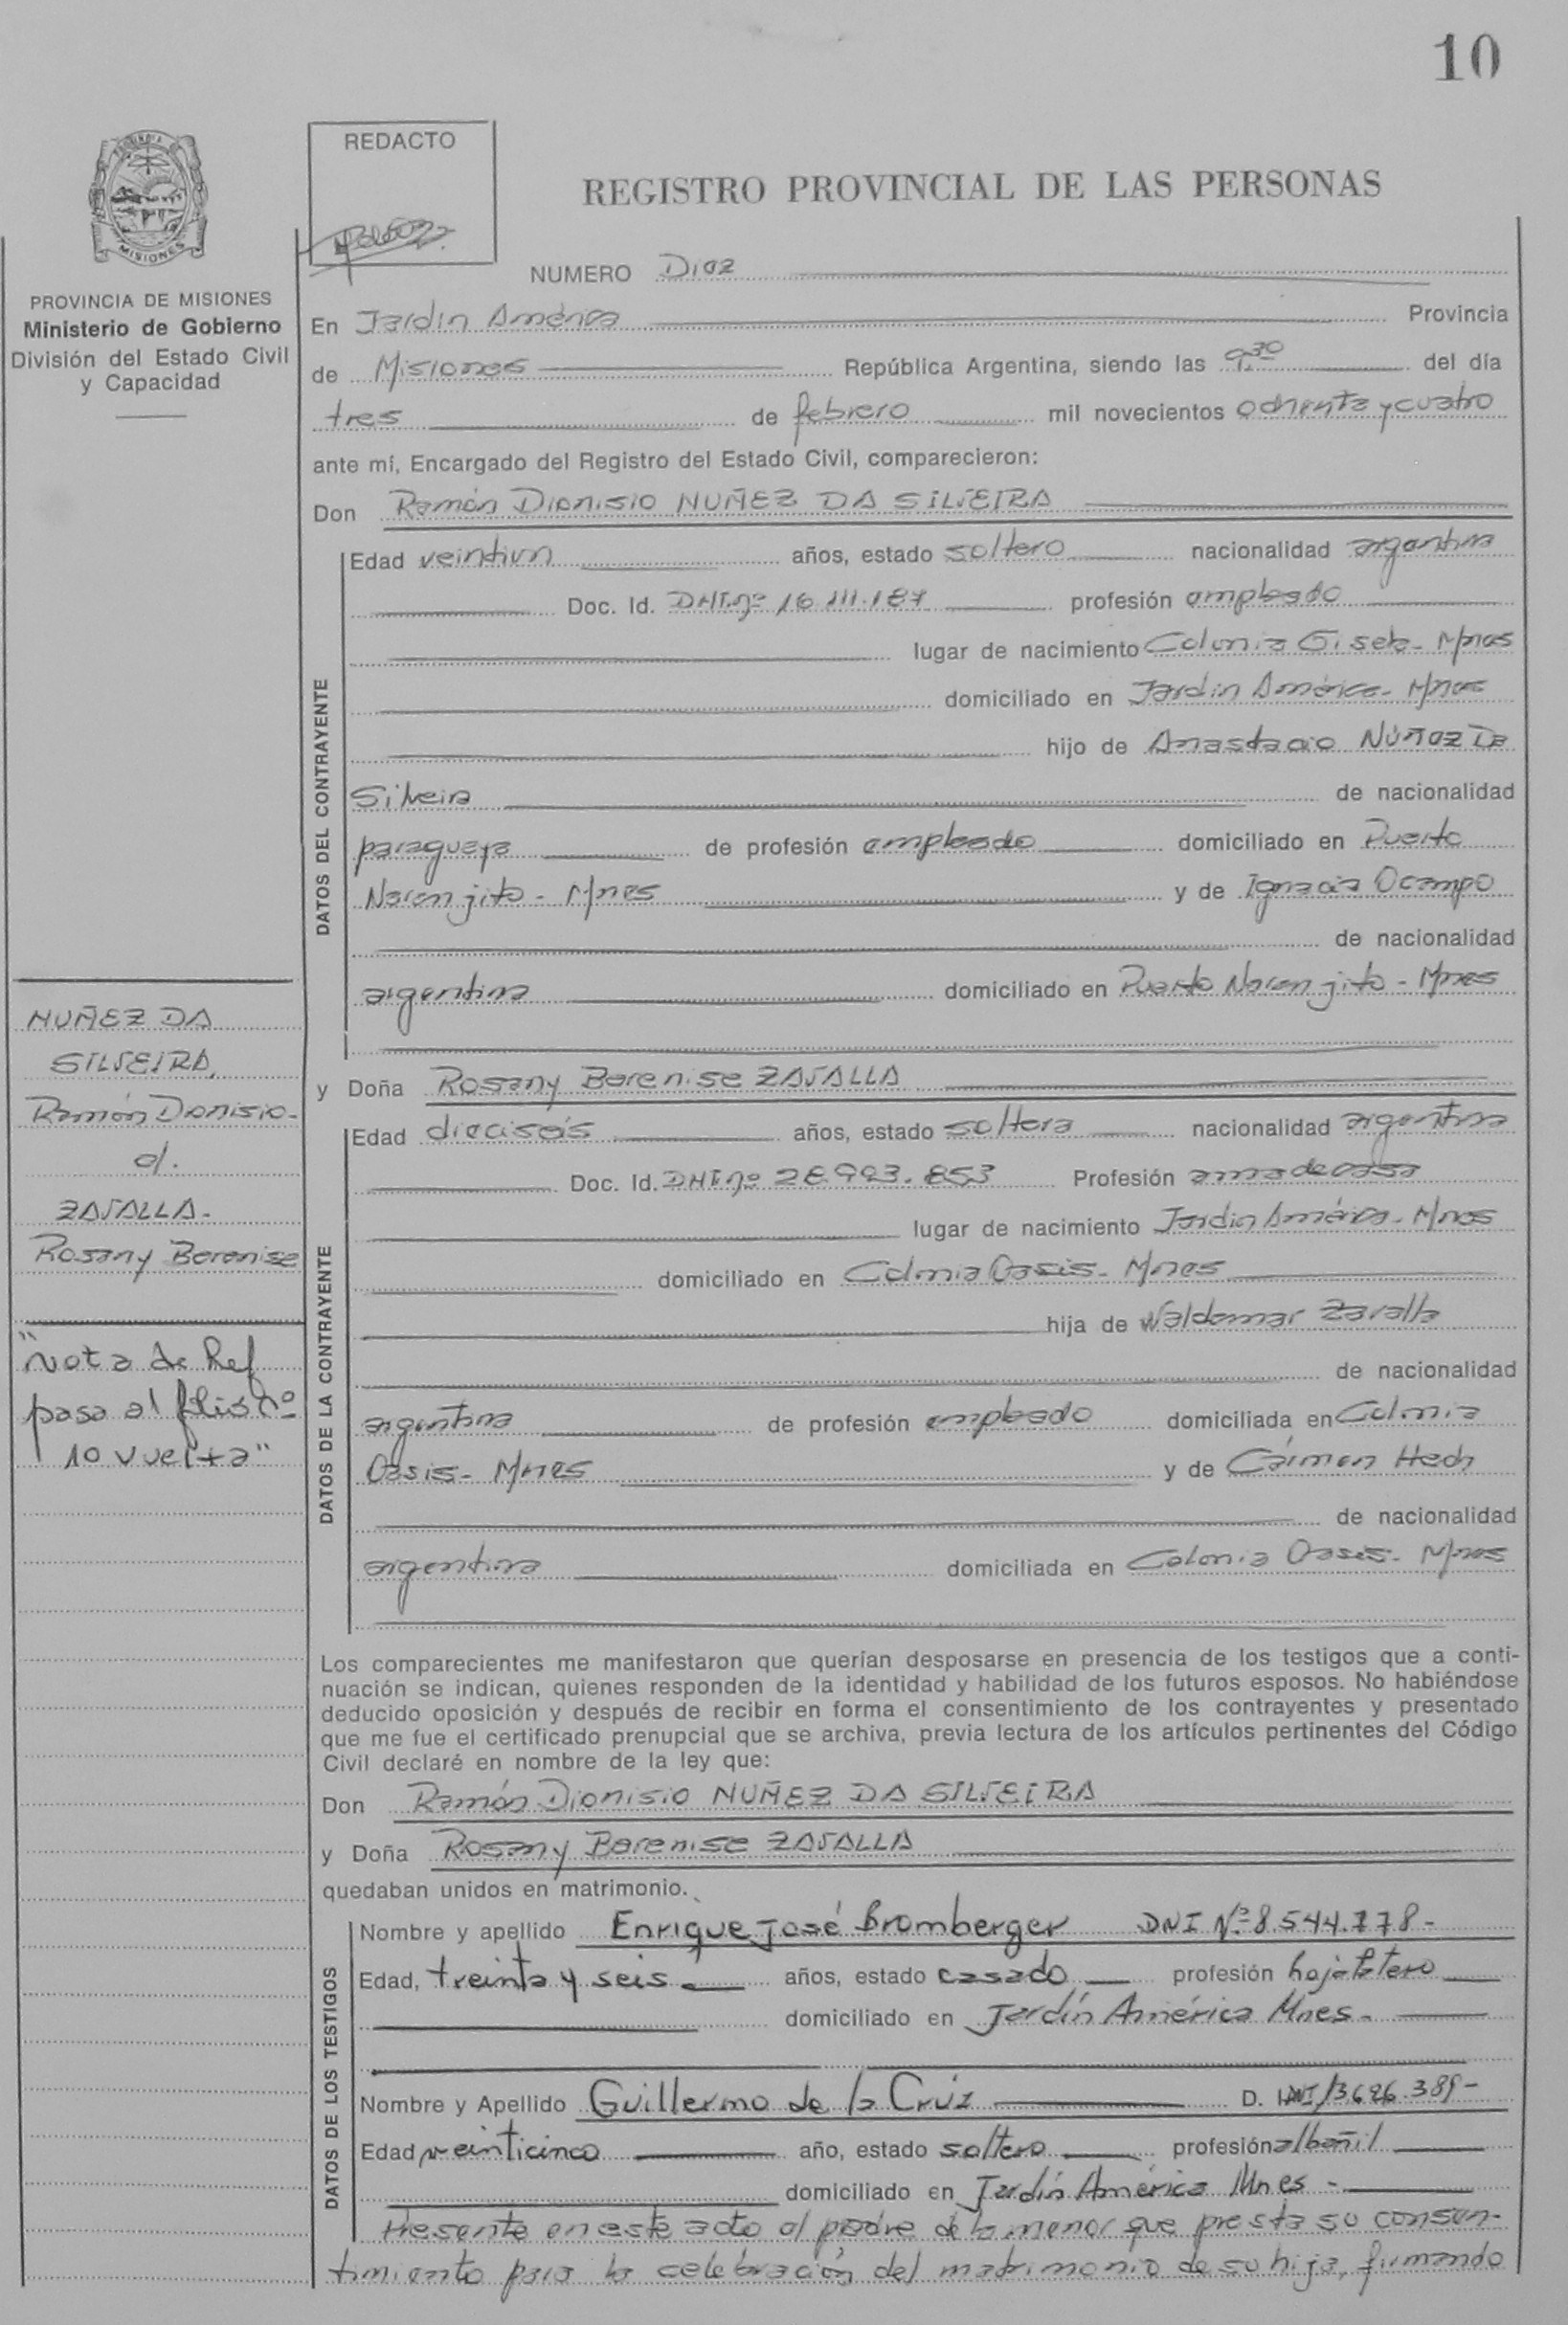 10
PROVINCIA DE MISIONES
Ministerio de Gobierno
División del Estado Civil
y Capacidad
REDACTO
REGISTRO PROVINCIAL DE LAS PERSONAS
NUMERO Diez
En Jardín América Provincia
de Misiones República Argentina, siendo las 9.30 del día
tres de febrero mil novecientos ochenta y cuatro
ante mí, Encargado del Registro del Estado Civil, comparecieron:
Don Ramón Dionisio NUÑEZ DA SILVEIRA
DATOS DEL CONTRAYENTE
Edad veintiun años, estado soltero nacionalidad argentina
Doc. Id. DNI.nº 16.111.187 profesión empleado
lugar de nacimiento Colonia Gisela- Mnes
domiciliado en Jardín América- Mnes
hijo de Anastacio Núñez Da
Silveira de nacionalidad
paraguaya de profesión empleado domiciliado en Puerto
Naranjito - Mnes y de Ignacia Ocampo
de nacionalidad
argentina domiciliado en Puerto Naranjito - Mnes
NUÑEZ DA
SILVEIRA,
Ramón Dionisio-
c/.
ZAVALLA-
Rosany Berenise
"Nota de Ref
pasa al folio nº
10 vuelta"
y Doña Rosany Berenise ZAVALLA
DATOS DE LA CONTRAYENTE
Edad dieciseis años, estado soltera nacionalidad argentina
Doc. Id. DNI nº 28.993.853 Profesión ama de casa
lugar de nacimiento Jardín América- Mnes
domiciliado en Colonia Oasis- Mnes
hija de Waldemar Zavalla
de nacionalidad
argentina de profesión empleado domiciliada en Colonia
Oasis- Mnes y de Carmen Hech
de nacionalidad
argentina domiciliada en Colonia Oasis- Mnes
Los comparecientes me manifestaron que querían desposarse en presencia de los testigos que a conti-
nuación se indican, quienes responden de la identidad y habilidad de los futuros esposos. No habiéndose
deducido oposición y después de recibir en forma el consentimiento de los contrayentes y presentado
que me fue el certificado prenupcial que se archiva, previa lectura de los artículos pertinentes del Código
Civil declaré en nombre de la ley que:
Don Ramón Dionisio NUÑEZ DA SILVEIRA
y Doña Rosany Berenise ZAVALLA
quedaban unidos en matrimonio.
DATOS DE LOS TESTIGOS
Nombre y apellido Enrique José Bromberger DNI Nº 8.544.778-
Edad, treinta y seis años, estado casado profesión hojalatero
domiciliado en Jardín América Mnes-
Nombre y Apellido Guillermo de la Cruz D. I. DNI 13.626.389-
Edad veinticinco año, estado soltero profesión albañil
domiciliado en Jardín América Mnes -
Presente en este acto el padre de la menor que presta su consen-
timiento para la celebración del matrimonio de su hija, firmando